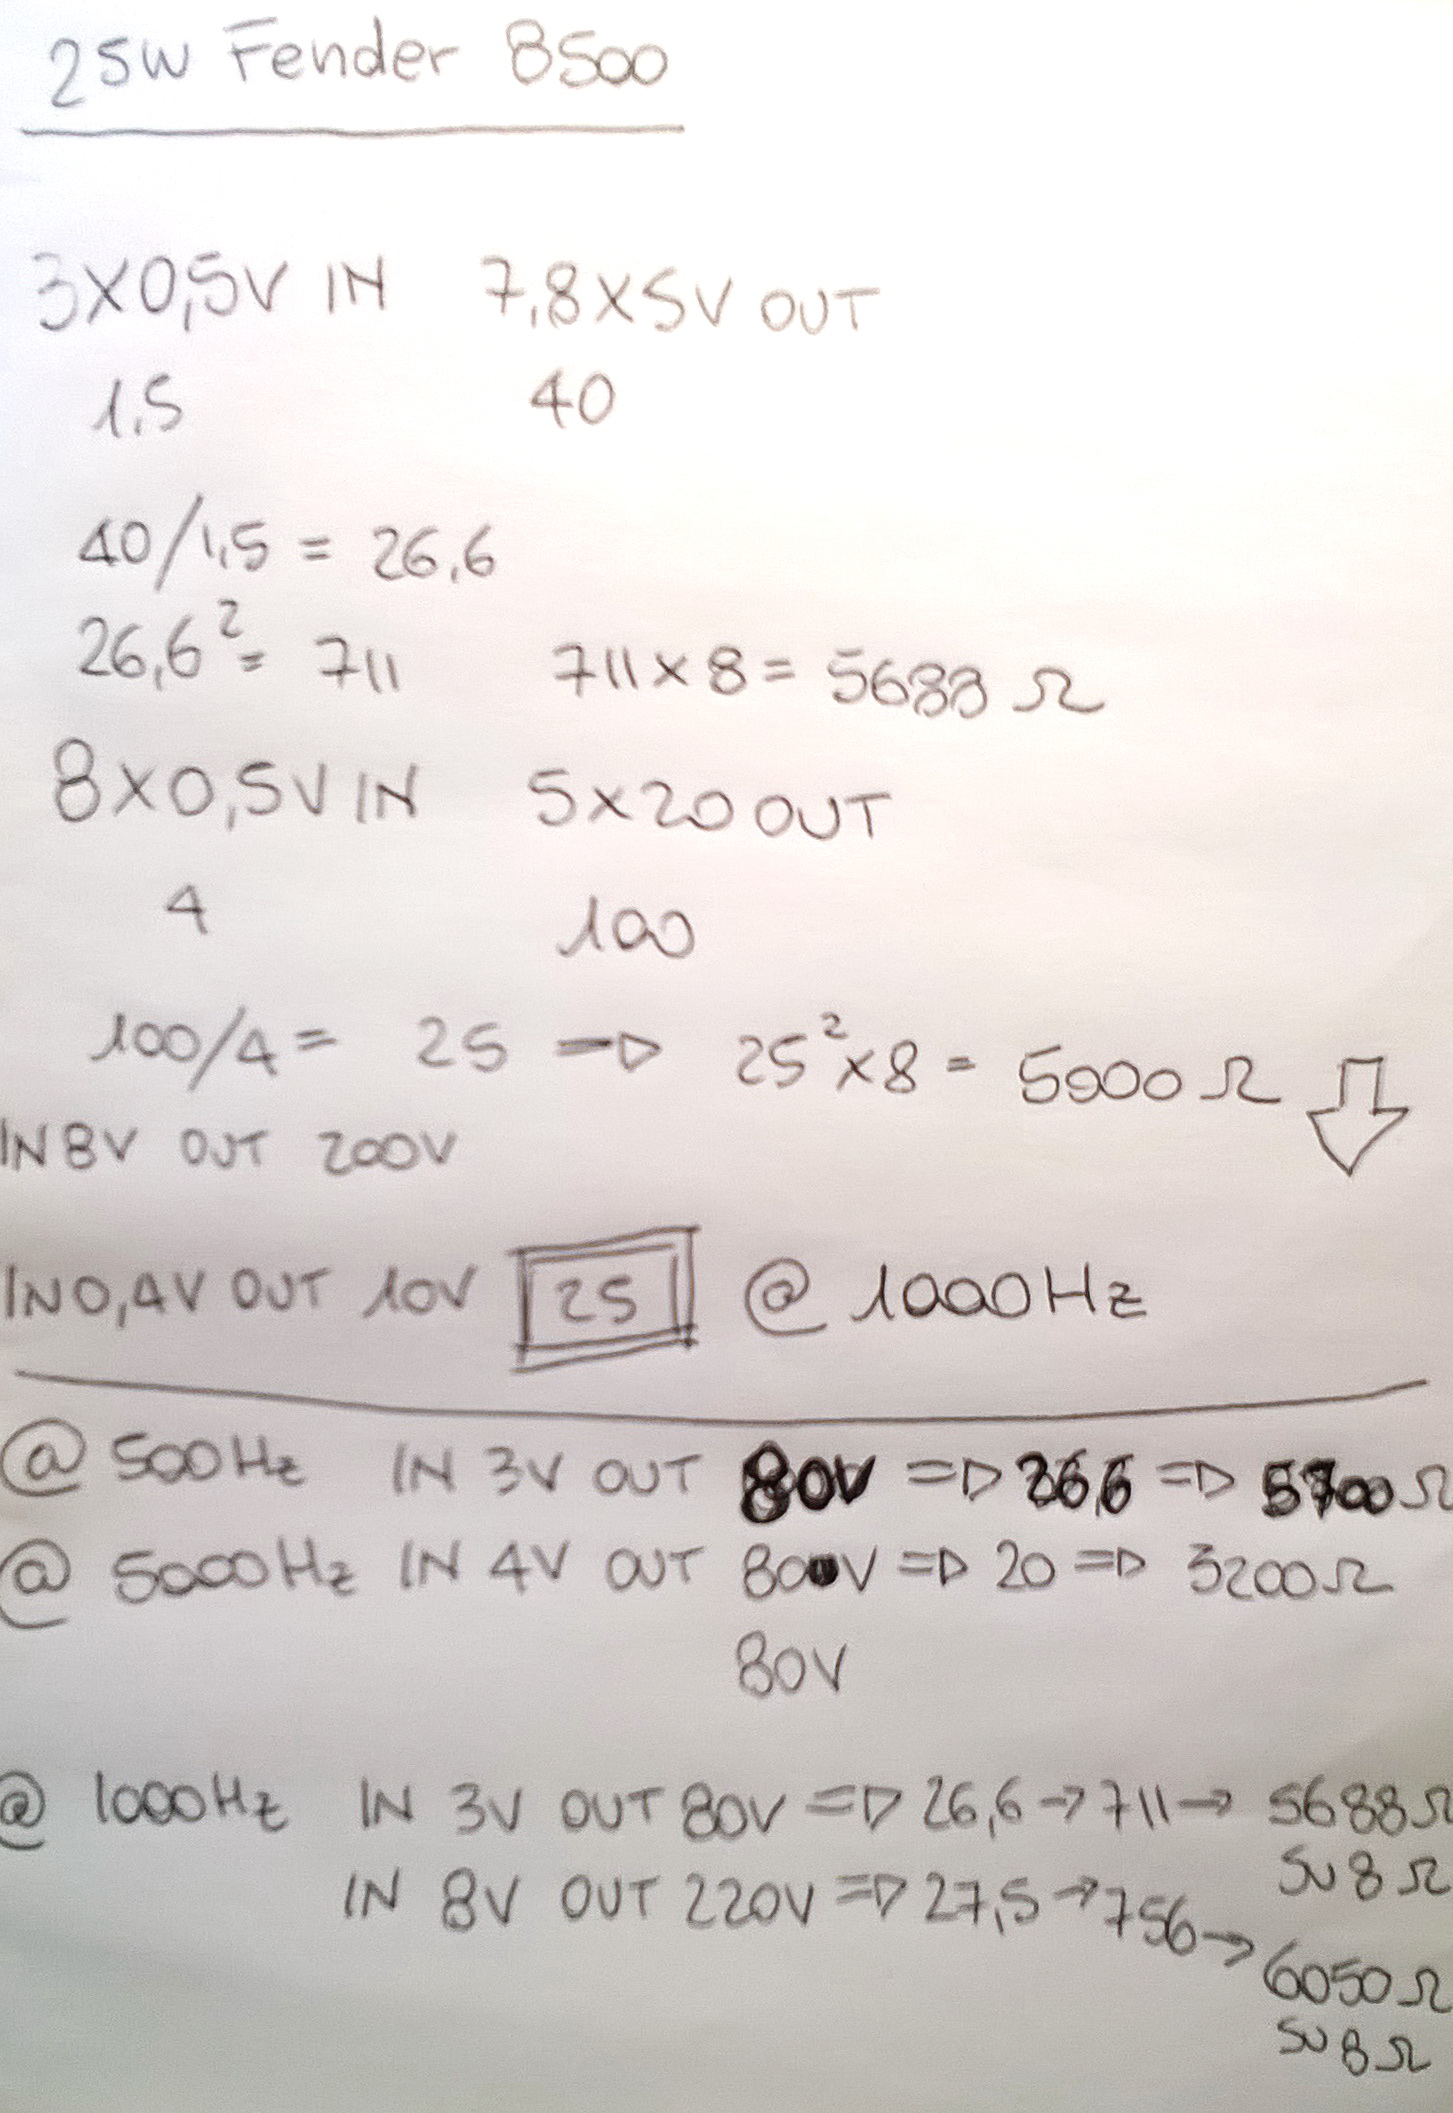 25W Fender 8500
3X0,5V IN 7,8X5V OUT
1,5 40
40/1,5 = 26,6
26,6²= 711 711x8= 5688 Ω
8X0,5V IN 5x20 OUT
4 100
100/4= 25 → 25²x8= 5000 Ω ⇩
IN 8V OUT 200V
IN 0,4V OUT 10V 25 @ 1000Hz
@ 500Hz IN 3V OUT 80V ⇒ 26,6 ⇒ 5700 Ω
@ 5000Hz IN 4V OUT 800V ⇒ 20 ⇒ 3200 Ω
80V
@ 1000Hz IN 3V OUT 80V ⇒ 26,6 → 711 → 5688 Ω
SU 8 Ω
IN 8V OUT 220V ⇒ 27,5 → 756 → 6050 Ω
SU 8 Ω